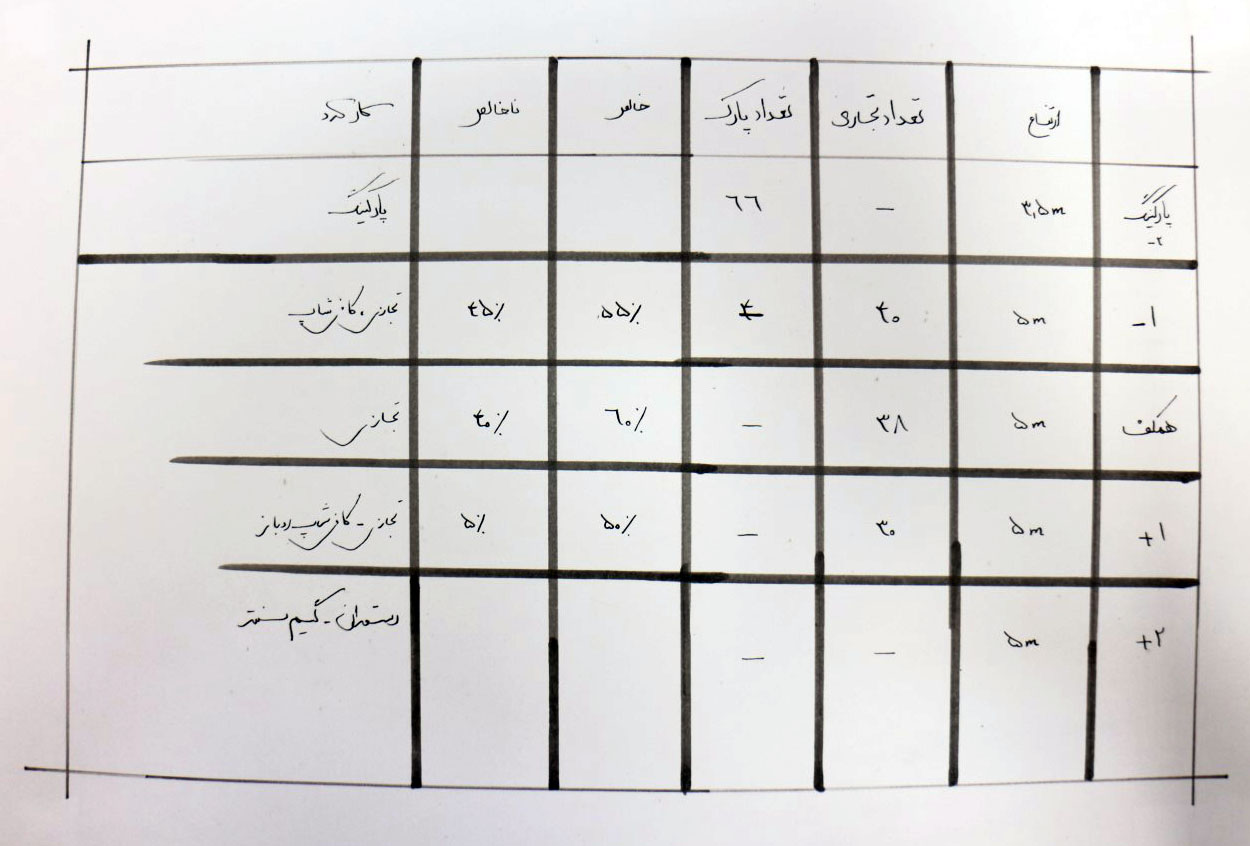 ارتفاع تعداد تجاری تعداد پارک خالص ناخالص کارکرد
پارکینگ ۳,۵m - ۶۶ پارکینگ
-۲
-۱ ۵m ۴۰ ۵۵٪ ۴۵٪ تجاری، کافی شاپ
همکف ۵m ۳۸ - ۶۰٪ ۴۰٪ تجاری
+۱ ۵m ۳۰ - ۵۰٪ ۵٪ تجاری - کافی شاپ روباز
+۲ ۵m - - رستوران - گیم سنتر